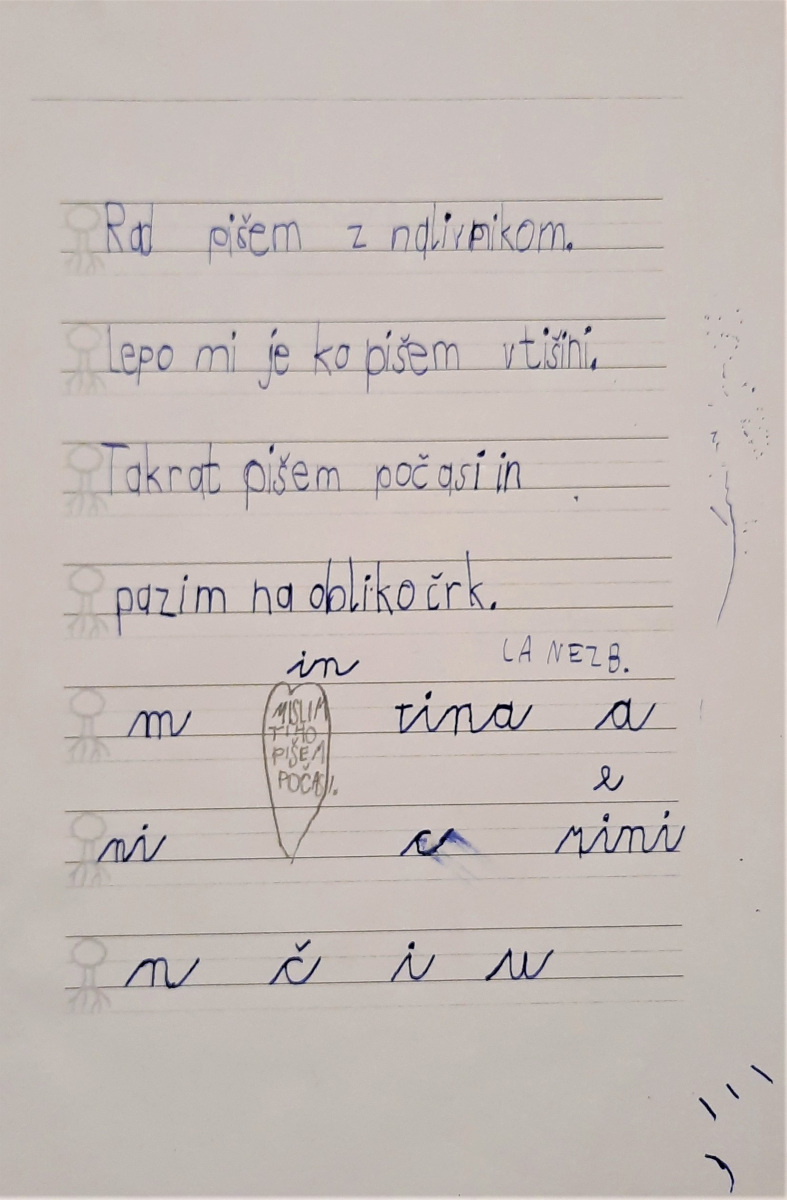 Rad pišem z nalivnikom.
Lepo mi je ko pišem v tišini.
Takrat pišem počasi in
pazim na obliko črk.
in
LA NEZB.
m tina a
MISLIM
TIHO
PIŠEM
POČASI.
e
ni c nini
n č i u